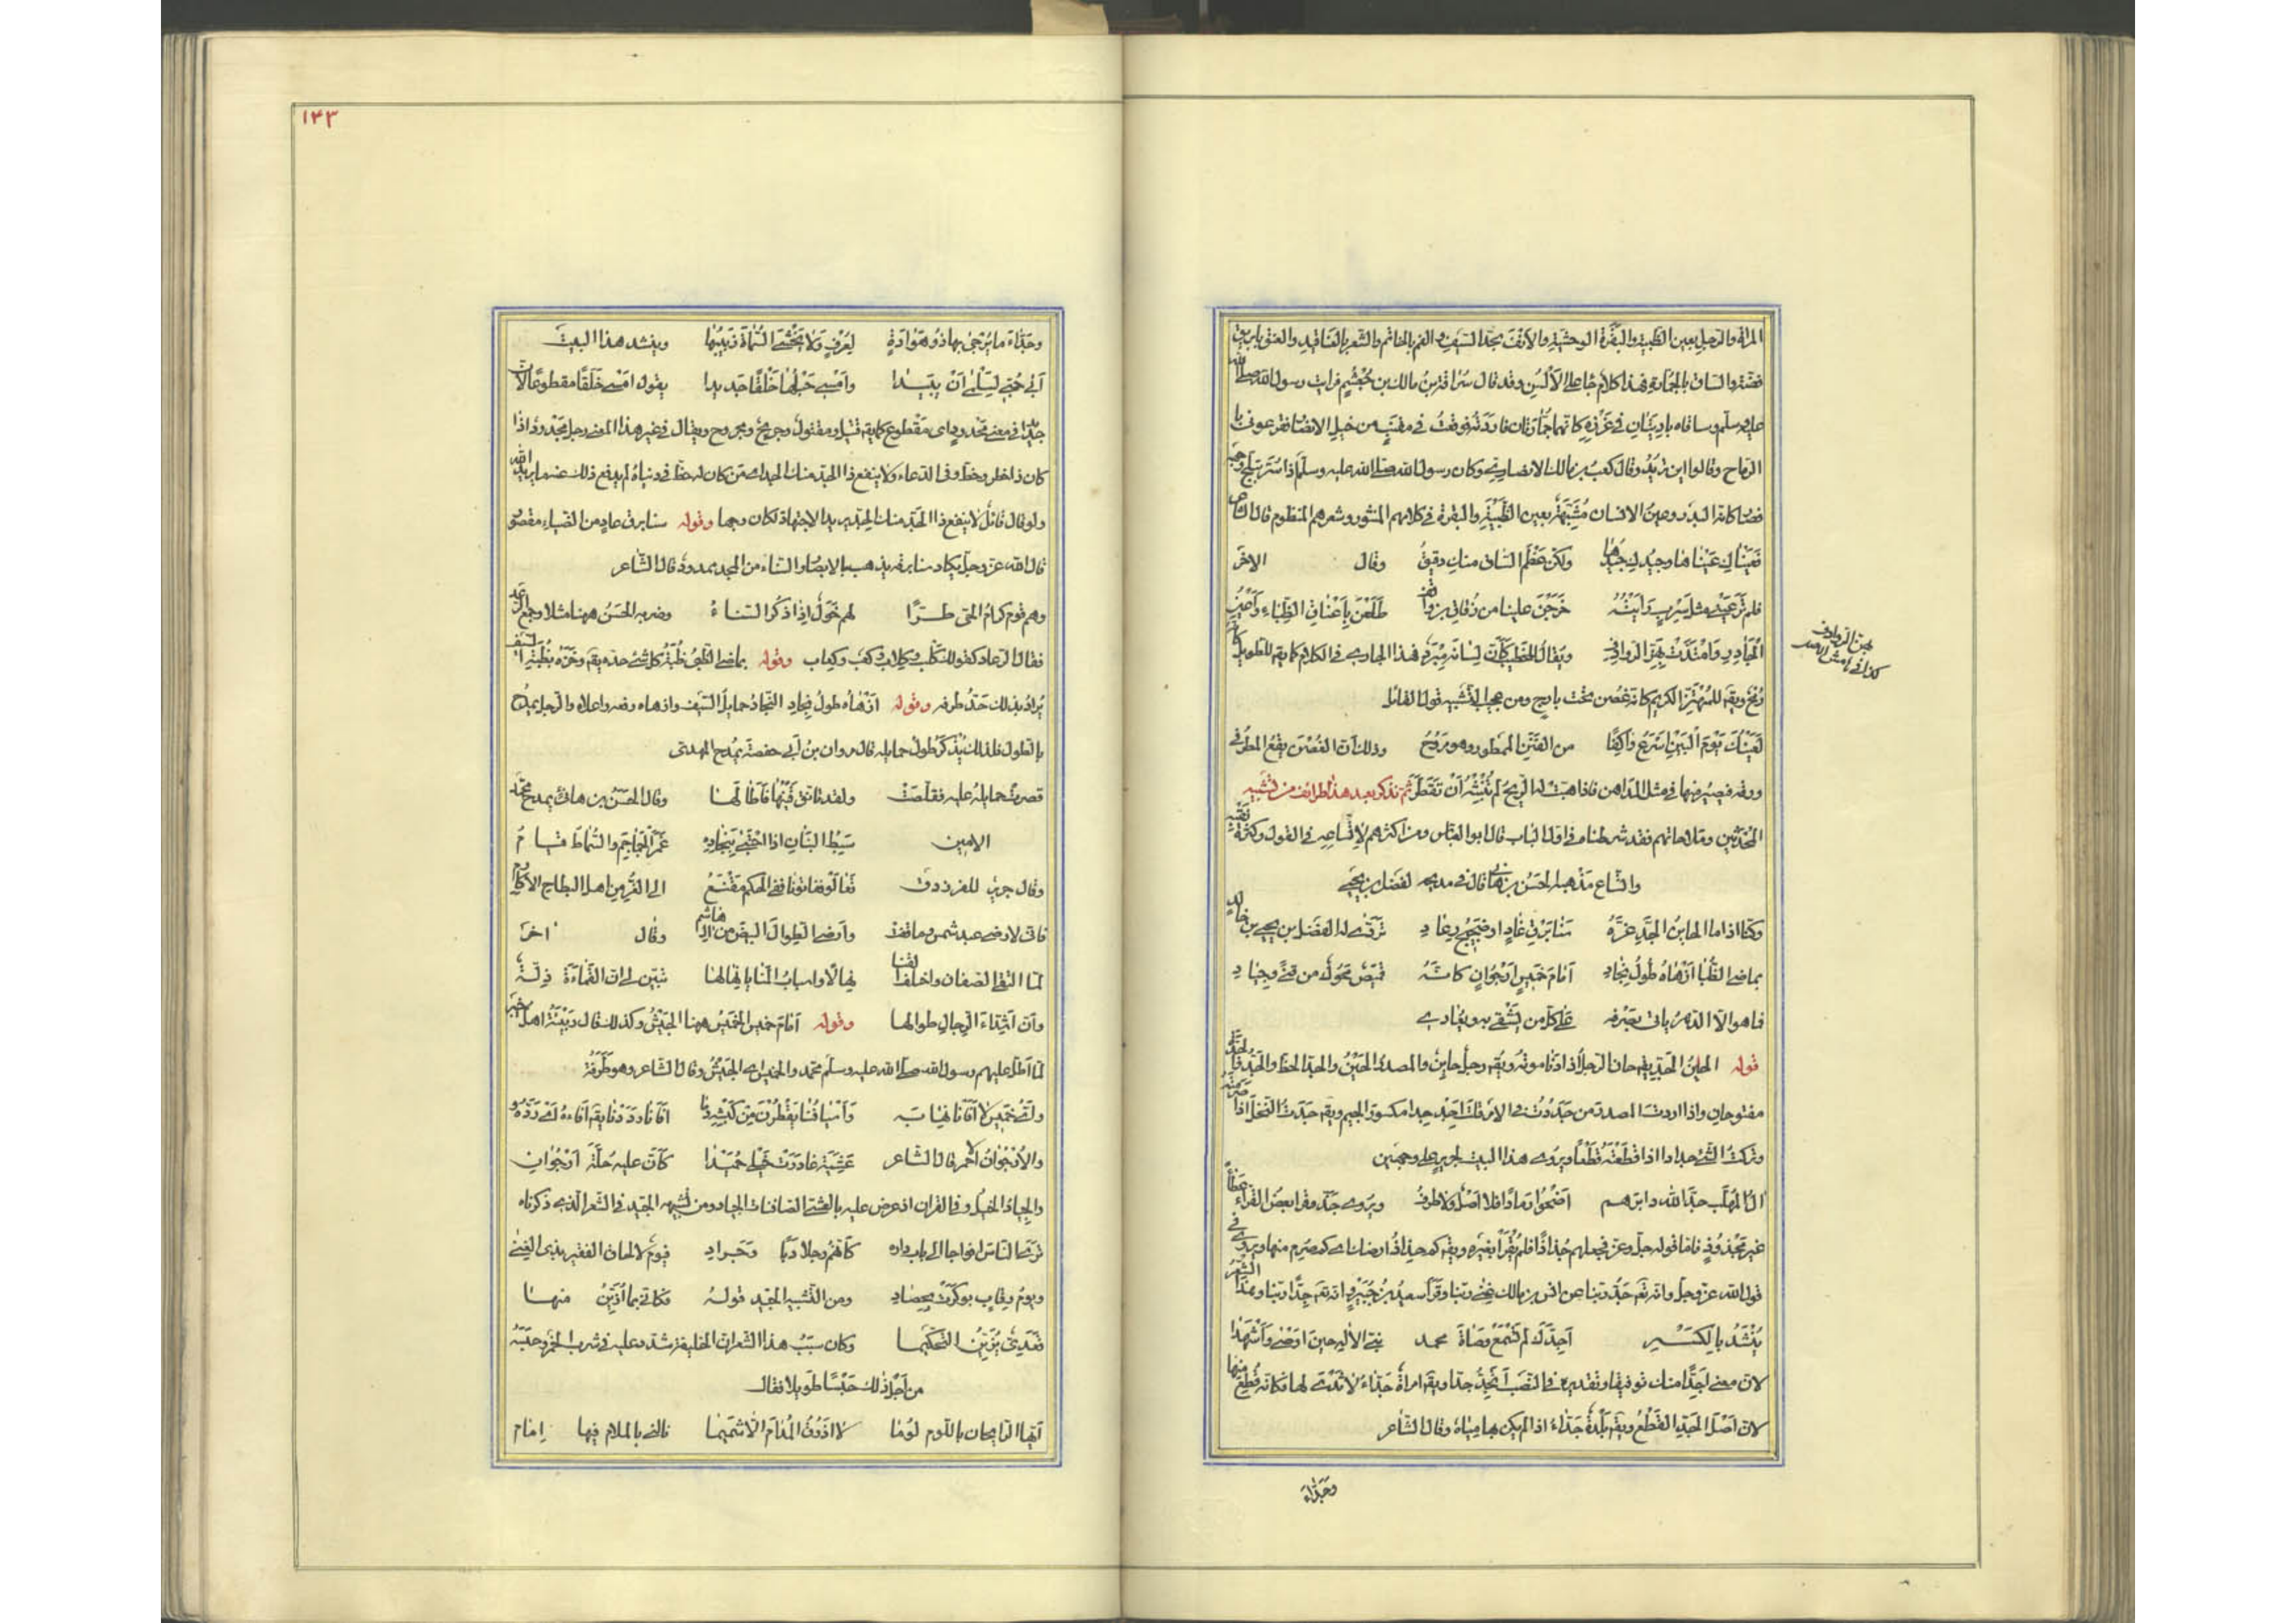 المراة والرجل بعين الظبية والبقرة الوحشية والانف بحد السيف والفم بالخاتم والشعر بالعناقيد والعنق بابريق
فضة والساق بالجمارة فهذا كلام جار على الالسن وقد قال سراقة بن مالك بن جعشم فرايت رسول الله صلى الله
عليه وسلم وساقاه باديتان في غرزه كانهما جمارتان فاردته فوقعت في مقنب من خيل الانصار فقرعوني با
الرماح وقالوا اين تريد وقال كعب بن مالك الانصاري وكان رسول الله صلى الله عليه وسلم اذا سر تبلج وجهه
فصار كانه البدر وعين الانسان مشبهة بعين الظبية والبقرة في كلامهم المنثور وشعرهم المنظوم قال الشاعر
فَعَيْنَاكِ عَيْنَاهَا وجِيدُكِ جِيدُهَا ولكن عظم الساق منك دقيق وقال الاخر
فلم تر عيني مثل سرب رايته خرجن علينا من زقاق بن واقف طلعن باعناق الظباء واعين
الجآذر وامتدت بهن الروادف ويقال للخطيب كان لسانه مبرد فهذا الجاري في الكلام كما يقـ للطويل كانه
رمح ويقـ للمهتز الكريم كانه غصن تحت بارح ومن عجيب التشبيه قول القائل
لعينك يوم البين اسرع واكفا من الفنن الممطور وهو مروح وذلك ان الغصن يقع المطر في
ورقه فيصير منها في مثل المداهن فاذا هبت له الريح لم تلبثه ان تقطر ثم نذكر بعد هذا طرائف من تشبيه
المحدثين وملاحاتهم فقد شرطناه في اول الباب قال ابو العباس ومن اكثرهم لاتساعه في القول وكثرة تفننه
واتساع مذهبه الحسن بن هانئ قال في مديحه لفضل بن يحيى
وكنا اذا ما الحاين الجد غره سنا برق غاد او ضجيج رعاد تردى له الفضل بن يحيى بن خالد
بماضي الظبا ازهاه طول نجاد امام خميس ارجوان كانه قميص محوك من قنى وجياد
فما هو الا الدهر ياتي بصرفه على كل من يشقى به ويعادي
قوله الحاين الجد يقـ حان الرجل اذا دنا موته ويقـ رجل حاين والمصدر الحين والجد الحظ والجد والجدة
مفتوحان واذا اردت المصدر من جددت في الامر قلت اجد جدا مكسورة الجيم ويقـ جددت النخل اذا صرمته
وتركت الشئ جدادا اذا قطعته قطعا ويروى هذا البيت لجرير على وجهين
ال المهلب جذ الله دابرهم اضحوا رمادا فلا اصل ولا طرف ويروى جد وقرا بعض القراء عطاء
غير مجذوذ فاما قوله جل وعز فجعلهم جذاذا فلم يقرا بغيره ويقـ كم جذاذ ارضك اي كم صرم منها ويروى في
قول الله عز وجل وانه تعـ جد ربنا عن انس بن مالك غنى ربنا وقرا سعيد بن جبير وانه تعـ جدا ربنا وهذا الشعر
ينشد بالكسر اجدك لم تسمع وصاة محمد نبي الاله حين اوصى واشهدا
لان معنى اجدا منك توقيفا وتقديره في النصب اتجد جدا ويقـ امراة جداء لا ثدى لها فكانه قطع منها
لان اصل الجد القطع ويقـ بلدة جداء اذا لم يكن بها مياه وقال الشاعر
وجداء
كذا في هامش الاصل
١٤٣
وجداء ما يرجى بها ذو هوادة لعرف ولا يخشى السماة ربيبها وينشد هذا البيت
ابى حبي لسلمى ان يبيدا وامسى حبلها خلقا جديدا يقول امسى خلقا مقطوعا لان
جديدا في معنى مجدود اي مقطوع كما يقـ قتيل ومقتول وجريح ومجروح ويقال في غير هذا المعنى رجل مجدود اذا
كان ذا حظ وخطر وفي الدعاء ولا ينفع ذا الجد منك الجد اي من كان له حظ في دنياه لم يدفع ذلك عنه ما يريد الله
ولو قال قائل لا ينفع ذا الجد منك الجد يريد الاجتهاد لكان وجها وقوله سنا برق غاد من الضياء مقصور
قال الله عز وجل يكاد سنا برقه يذهب بالابصار والسناء من المجد ممدود قال الشاعر
وهم قوم كرام الحي طرا لهم خول اذا ذكر السناء وضربه الحسن ههنا مثلا وجمع الرعد
فقال الرعاد كقولك كلب وكلاب وكعب وكعاب وقوله بماضي الظبى ظبة كل شئ حده يقـ وخزه بظبة السيف
يراد بذلك حد طرفه وقوله ازهاه طول نجاد النجاد حمايل السيف وازهاه رفعه واعلاه والرجل يمدح
بالطول فلذلك يذكر طول حمايله قال مروان بن ابي حفصة يمدح المهدي
قصرت حمايله عليه فقلصت ولقد تانق قينها فاطالها وقال الحسن بن هانئ يمدح محمد
الامين سبط البنان اذا احتبى بنجاده غمر الجماجم والسماط قيام
وقال جرير للفرزدق تعالوا ففاتونا ففي الحكم مقنع الى الغر من اهل البطاح الاكارم
فاني لارضى عبد شمس وما قضت وارضى الطوال البيض من ال هاشم وقال اخر
لما التقى الصفان واختلف القنا نهالا واسباب المنايا نهالها تبين لي ان القماءة ذلة
وان اشداء الرجال طوالها وقوله امام خميس الخميس ههنا الجيش وكذلك قال ربيئة اهل خيبر
لما اطل عليهم رسول الله صلى الله عليه وسلم محمد والخميس اي الجيش وقال الشاعر وهو طرفة
والارجوان الاحمر قال الشاعر عشية غادرت خيلي حميدا كان عليه حلة ارجوان
والجياد الخيل وفي القران اذ عرض عليه بالعشي الصافنات الجياد ومن تشبيهه الجيد في الشعر الذي ذكرناه
ترى الناس افواجا الى باب داره كانهم رجلا دبا وجراد فيوم لالحاق الفقير بذي الغنى
ويوم رقاب بوكرت بحصاد ومن التشبيه الجيد قوله فكاني بما ازين منها
قعدي يزين التحكيما وكان سبب هذا الشعر ان الخليفة تشدد عليه في شرب الخمر وحبسه
من اجل ذلك حبسا طويلا فقال
ايها الرايحان باللوم لوما لا اذوق المدام الا شميما نالني بالملام فيها امام